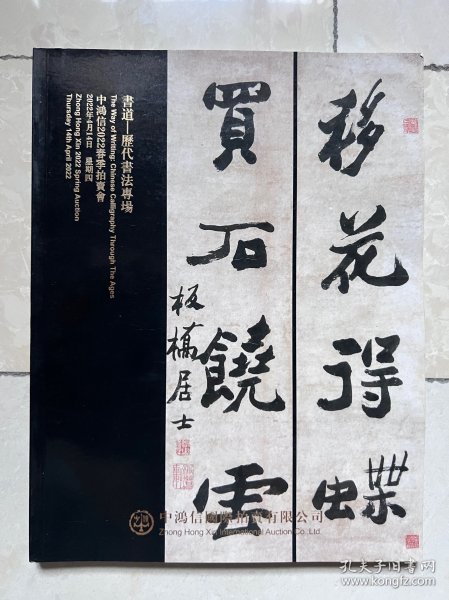 移花得蝶
買石饒雲
板橋居士
書道—歷代書法專場
The Way of Writing: Chinese Calligraphy Through The Ages
中鴻信2022春季拍賣會
2022年4月14日 星期四
Zhong Hong Xin 2022 Spring Auction
Thursday 14th April 2022
中鴻信國際拍賣有限公司
Zhong Hong Xin International Auction Co. Ltd
孔夫子旧书网
kongfz.com